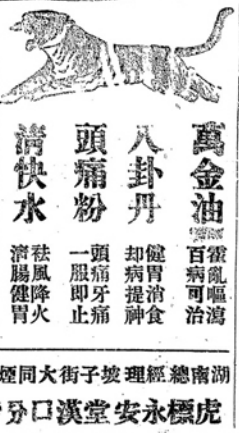 萬金油
霍亂嘔瀉
百病可治
八卦丹
健胃消食
却病提神
頭痛粉
頭痛牙痛
一服即止
清快水
祛風降火
清腸健胃
湖南總經理坡子街大同煙
虎標永安堂漢口分